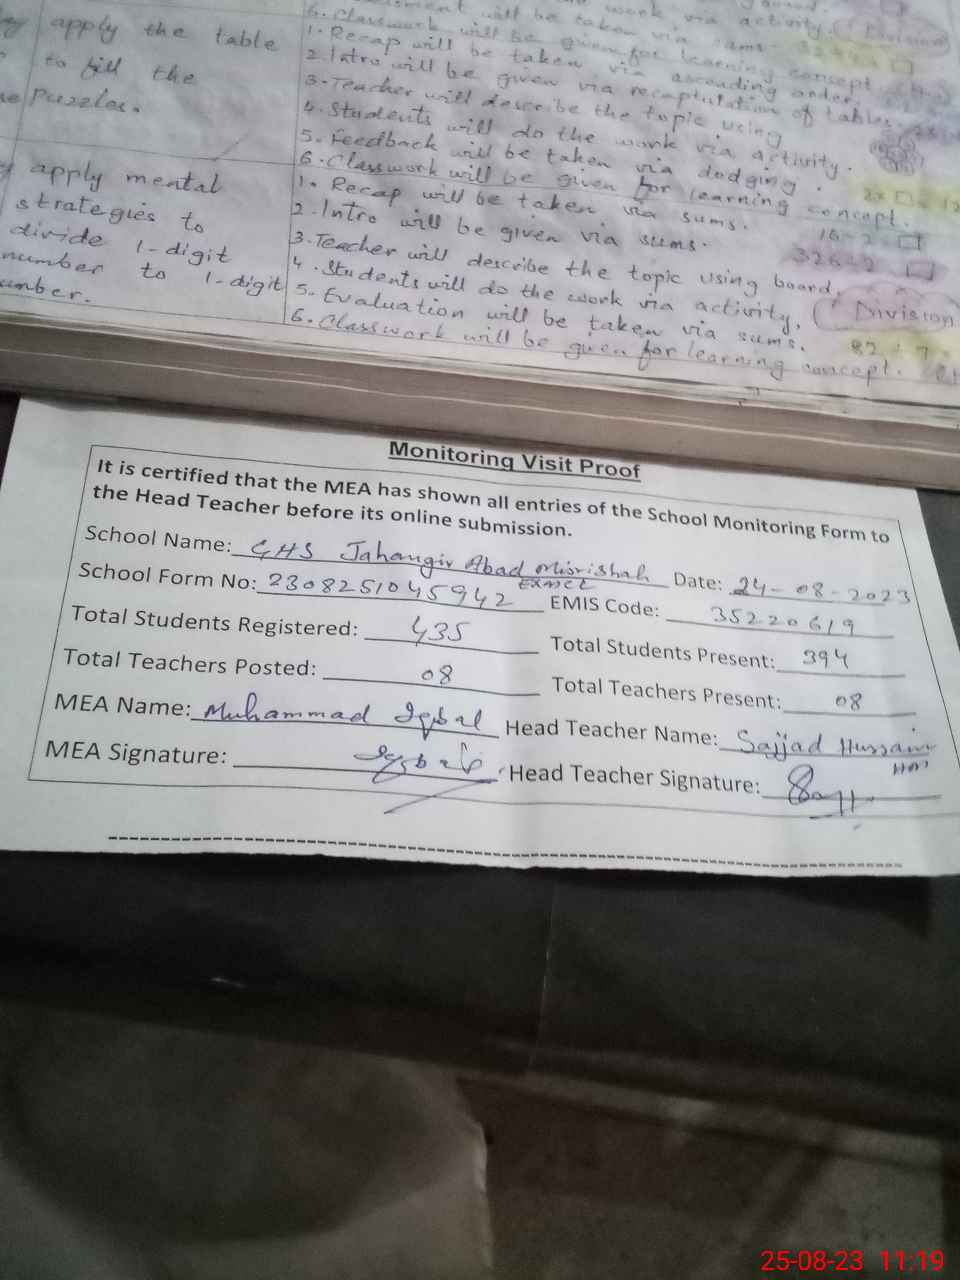 work via activity.
will be taken via sums.
6. Classwork will be given for learning concept
apply the table
to fill the
Puzzles.
1. Recap will be taken via ascending order.
2. Intro will be given via recaptulation of tables.
3. Teacher will describe the topic using
4. Students will do the work via activity.
5. Feedback will be taken via dodging.
6. Classwork will be given for learning concept.
apply mental
strategies to
divide 1-digit
number to 1-digit
umber.
1. Recap will be taken via sums.
2. Intro will be given via sums.
3. Teacher will describe the topic using board.
4. Students will do the work via activity.
5. Evaluation will be taken via sums.
6. Classwork will be given for learning concept.
Division
16-2
Division
82 ÷ 7
Monitoring Visit Proof
It is certified that the MEA has shown all entries of the School Monitoring Form to
the Head Teacher before its online submission.
School Name: GHS Jahangir Abad Misrishah Date: 24-08-2023
School Form No: 2308251045942 EMIS Code: 35220619
Total Students Registered: 435 Total Students Present: 394
Total Teachers Posted: 08 Total Teachers Present: 08
MEA Name: Muhammad Iqbal Head Teacher Name: Sajjad Hussain
MEA Signature: Iqbal Head Teacher Signature:
25-08-23 11:19